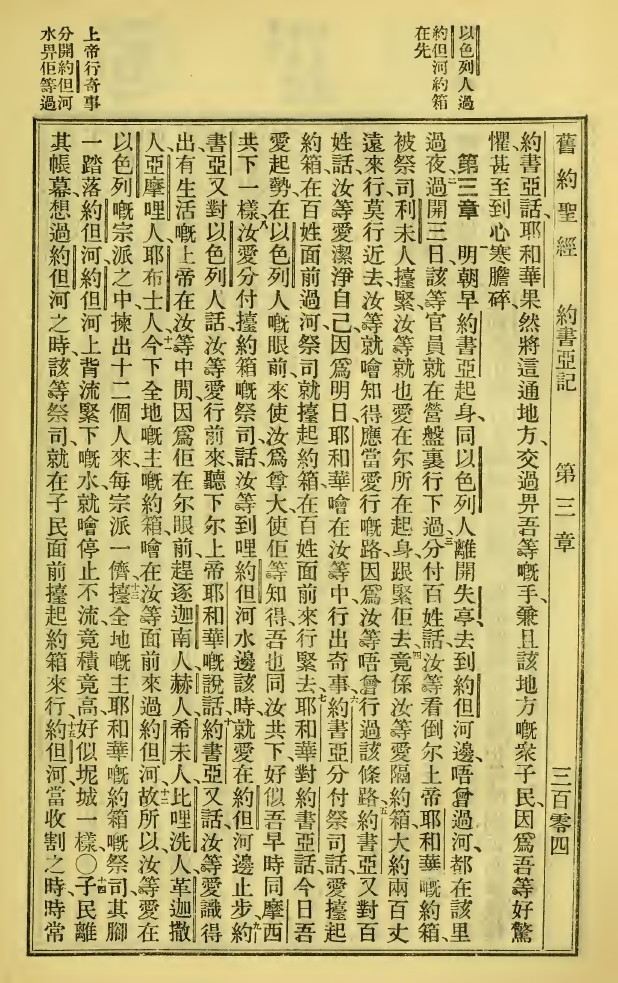 以色列人過
約但河約箱
在先
上帝行奇事
分開約但河
水畀佢等過
舊約聖經 約書亞記 第三章 三百零四
約書亞話、耶和華果然將這通地方、交過畀吾等嘅手、兼且該地方嘅衆子民、因爲吾等好驚
懼甚至到心寒膽碎、
第三章 一明朝早約書亞起身、同以色列人離開失亭、去到約但河邊、唔曾過河、都在該里
過夜、二過開三日、該等官員就在營盤裏行下過、三分付百姓話、汝等看倒尔上帝耶和華嘅約箱、
被祭司利未人擡緊、汝等就也愛在尔所在起身、跟緊佢去、四竟係汝等愛隔約箱、大約兩百丈
遠來行、莫行近去、汝等就噲知得應當愛行嘅路、因爲汝等唔曾行過該條路、五約書亞又對百
姓話、汝等愛潔淨自己、因爲明日、耶和華噲在汝等中行出奇事、六約書亞分付祭司話、愛擡起
約箱、在百姓面前過河、祭司就擡起約箱、在百姓面前來行緊去、七耶和華對約書亞話、今日吾
愛起勢在以色列人嘅眼前、來使汝爲尊大、使佢等知得、吾也同汝共下、好似吾早時同摩西
共下一樣、八汝愛分付擡約箱嘅祭司話、汝等到哩約但河水邊該時、就愛在約但河邊止步、九約
書亞又對以色列人話、汝等愛行前來、聽下尔上帝耶和華嘅說話、十約書亞又話、汝等愛識得
出有生活嘅上帝在汝等中間、因爲佢在尔眼前、趕逐迦南人、赫人、希未人、比哩洗人、革迦撒
人、亞摩哩人、耶布士人、十一今下全地嘅主嘅約箱、噲在汝等面前來過約但河、十二故所以汝等愛在
以色列嘅宗派之中、揀出十二個人來、每宗派一儕、十三擡全地嘅主耶和華嘅約箱嘅祭司、其腳
一踏落約但河、約但河上背流緊下嘅水、就噲停止不流、竟積竟高、好似坭城一樣、〇十四子民離
其帳幕、想過約但河之時、該等祭司、就在子民面前擡起約箱來行、十五約但河當收割之時、時常